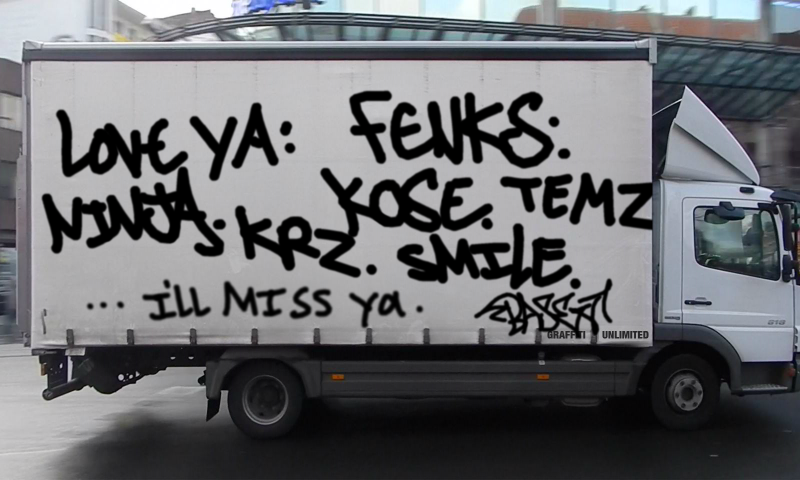 LOVE YA: FENKS:
NINJA. KOSE. TEMZ
KRZ. SMILE.
... iLL MISS Ya.
GRAFFITI UNLIMITED